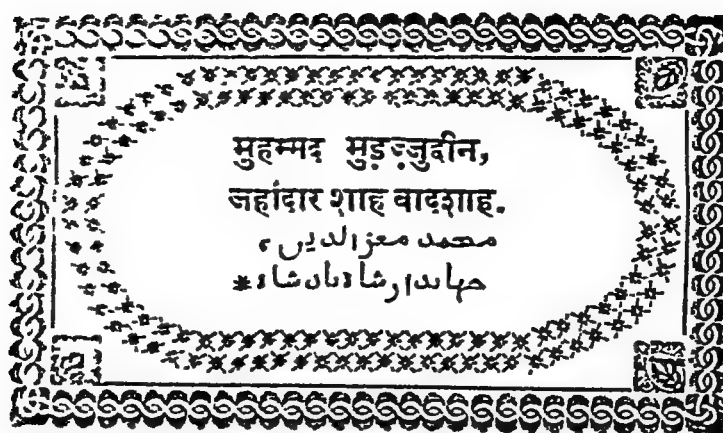 मुहम्मद मुइज़्ज़ुद्दीन,
जहांदार शाह वादशाह.
محمد معز الدين ،
جهاندار شاه بادشاه *